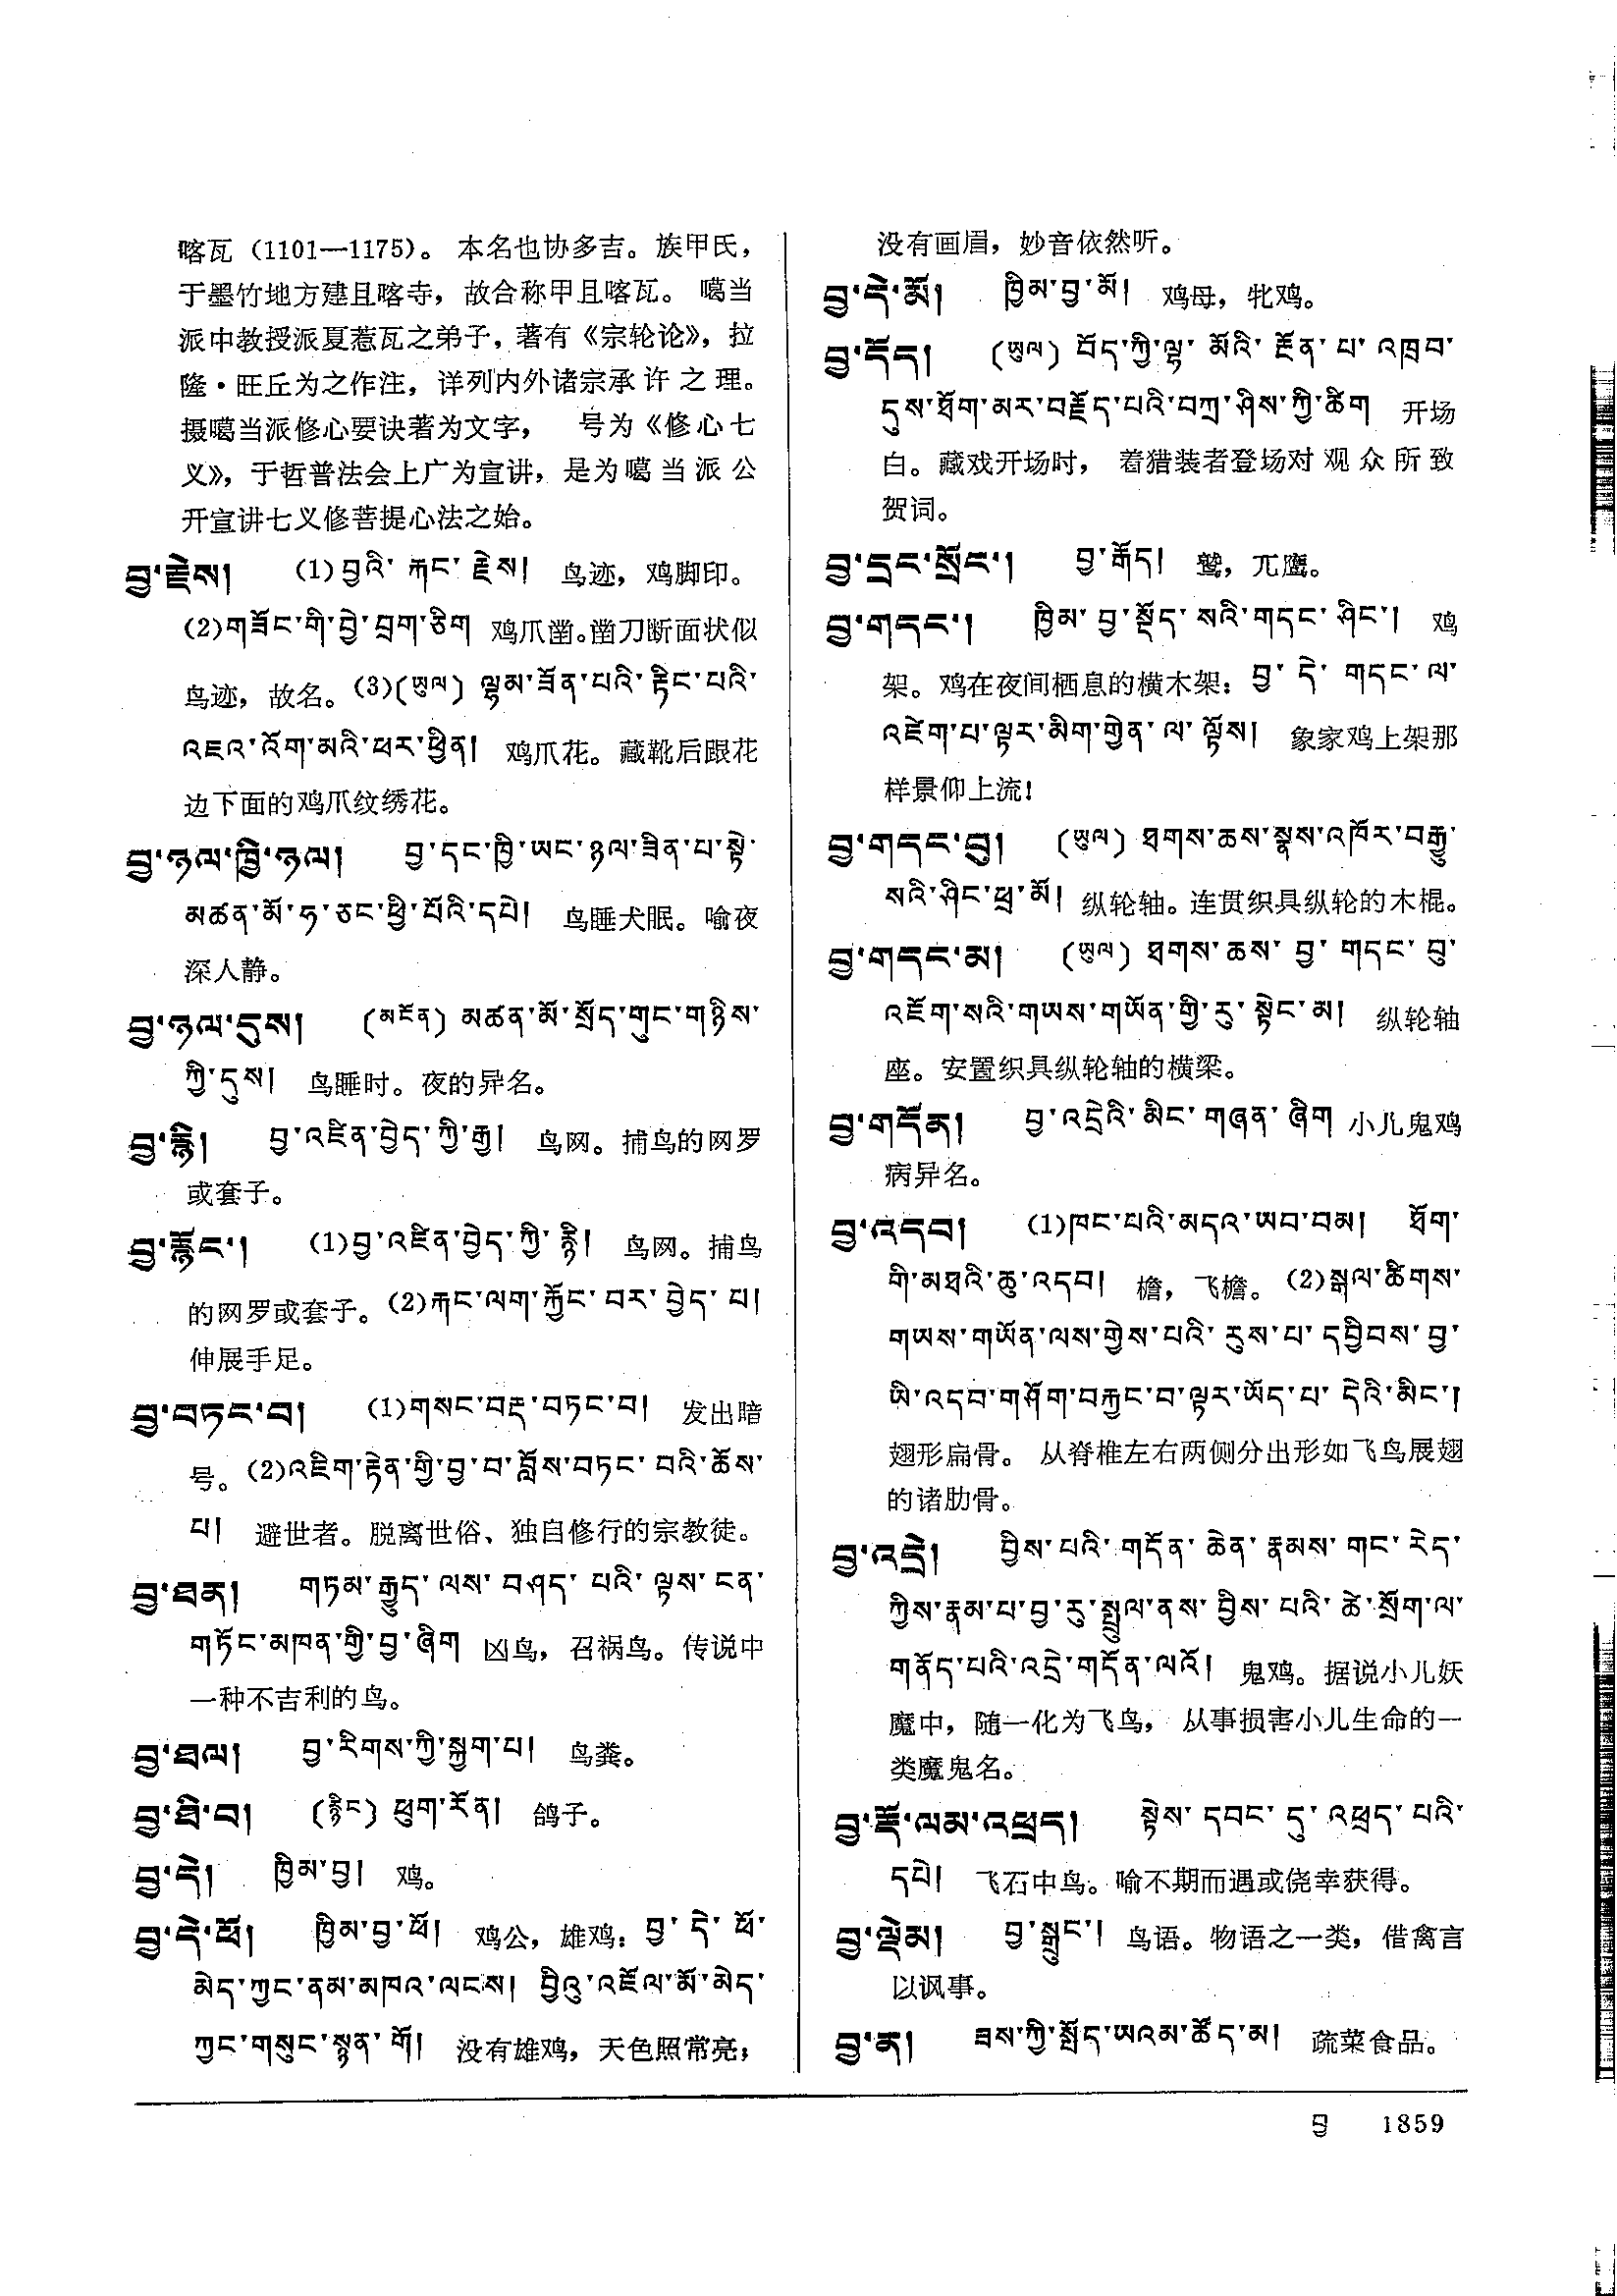 喀瓦（1101—1175）。 本名也协多吉。族甲氏，
于墨竹地方建且喀寺，故合称甲且喀瓦。 噶当
派中教授派夏惹瓦之弟子，著有《宗轮论》，拉
隆·旺丘为之作注，详列内外诸宗承许之理。
摄噶当派修心要诀著为文字， 号为《修心七
义》，于哲普法会上广为宣讲，是为噶当派公
开宣讲七义修菩提心法之始。
བྱ་རྗེས། (1)བྱའི་རྐང་རྗེས། 鸟迹，鸡脚印。
(2)གཟོང་གི་བྱེ་བྲག་ཅིག 鸡爪凿。凿刀断面状似
鸟迹，故名。(3)(ཡུལ) ལྷམ་ཟོན་པའི་རྟིང་པའི་
འཇའ་འོག་མའི་ཕར་ཕྱིན། 鸡爪花。藏靴后跟花
边下面的鸡爪纹绣花。
བྱ་ཉལ་ཁྱི་ཉལ། བྱ་དང་ཁྱི་ཡང་ཉལ་ཟིན་པ་སྟེ་
མཚན་མོ་ཧ་ཅང་ཕྱི་པོའི་དཔེ། 鸟睡犬眠。喻夜
深人静。
བྱ་ཉལ་དུས། (མངོན) མཚན་མོ་སྲོད་གུང་གཉིས་
ཀྱི་དུས། 鸟睡时。夜的异名。
བྱ་རྙི། བྱ་འཛིན་བྱེད་ཀྱི་རྒྱ། 鸟网。捕鸟的网罗
或套子。
བྱ་རྙོང་། (1)བྱ་འཛིན་བྱེད་ཀྱི་རྙི། 鸟网。捕鸟
的网罗或套子。(2)རྐང་ལག་རྐྱོང་བར་བྱེད་པ།
伸展手足。
བྱ་བཏང་བ། (1)གསང་བརྡ་བཏང་བ། 发出暗
号。(2)འཇིག་རྟེན་གྱི་བྱ་བ་བློས་བཏང་བའི་ཆོས་
པ། 避世者。脱离世俗、独自修行的宗教徒。
བྱ་ཐན། གཏམ་རྒྱུད་ལས་བཤད་པའི་ལྟས་ངན་
གཏོང་མཁན་གྱི་བྱ་ཞིག 凶鸟，召祸鸟。传说中
一种不吉利的鸟。
བྱ་ཐལ། བྱ་རིགས་ཀྱི་སྐྱག་པ། 鸟粪。
བྱ་ཐི་བ། (རྙིང) ཕུག་རོན། 鸽子。
བྱ་དེ། ཁྱིམ་བྱ། 鸡。
བྱ་དེ་ཕོ། ཁྱིམ་བྱ་ཕོ། 鸡公，雄鸡：བྱ་དེ་ཕོ་
མེད་ཀྱང་ནམ་མཁའ་ལངས། བྱིའུ་འཇོལ་མོ་མེད་
ཀྱང་གསུང་སྙན་གོ། 没有雄鸡，天色照常亮；
没有画眉，妙音依然听。
བྱ་དེ་མོ། ཁྱིམ་བྱ་མོ། 鸡母，牝鸡。
བྱ་དོད། (ཡུལ) བོད་ཀྱི་ལྷ་མོའི་རྔོན་པ་འཁྲབ་
དུས་ཐོག་མར་བརྗོད་པའི་བཀྲ་ཤིས་ཀྱི་ཚིག 开场
白。藏戏开场时， 着猎装者登场对观众所致
贺词。
བྱ་དྲང་སྲོང་། བྱ་རྒོད། 鹫，兀鹰。
བྱ་གདང་། ཁྱིམ་བྱ་སྡོད་སའི་གདང་ཤིང་། 鸡
架。鸡在夜间栖息的横木架：བྱ་དེ་གདང་ལ་
འཛེག་པ་ལྟར་མིག་གྱེན་ལ་ལྟོས། 象家鸡上架那
样景仰上流！
བྱ་གདང་བུ། (ཡུལ) ཐགས་ཆས་སྣས་འཁོར་བརྒྱུ་
སའི་ཤིང་ཕྲ་མོ། 纵轮轴。连贯织具纵轮的木棍。
བྱ་གདང་མ། (ཡུལ) ཐགས་ཆས་བྱ་གདང་བུ་
འཇོག་སའི་གཡས་གཡོན་གྱི་རུ་སྟེང་མ། 纵轮轴
座。安置织具纵轮轴的横梁。
བྱ་གདོན། བྱ་འདྲེའི་མིང་གཞན་ཞིག 小儿鬼鸡
病异名。
བྱ་འདབ། (1)ཁང་པའི་མདའ་ཡབ་བམ། ཐོག་
གི་མཐའི་ཆུ་འདབ། 檐，飞檐。(2)སྒལ་ཚིགས་
གཡས་གཡོན་ལས་གྱེས་པའི་རུས་པ་དབྱིབས་བྱ་
ཡི་འདབ་གཤོག་བརྐྱང་བ་ལྟར་ཡོད་པ་དེའི་མིང་།
翅形扁骨。 从脊椎左右两侧分出形如飞鸟展翅
的诸肋骨。
བྱ་འདྲེ། བྱིས་པའི་གདོན་ཆེན་རྣམས་གང་རེད་
ཀྱིས་རྣམ་པ་བྱ་རུ་སྤྲུལ་ནས་བྱིས་པའི་ཚེ་སྲོག་ལ་
གནོད་པའི་འདྲེ་གདོན་ལའོ། 鬼鸡。据说小儿妖
魔中，随一化为飞鸟， 从事损害小儿生命的一
类魔鬼名。
བྱ་རྡོ་ལམ་འཕྲད། སྟེས་དབང་དུ་འཕྲད་པའི་
དཔེ། 飞石中鸟。喻不期而遇或侥幸获得。
བྱ་ལྡེམ། བྱ་སྒྲུང་། 鸟语。物语之一类，借禽言
以讽事。
བྱ་ན། ཟས་ཀྱི་སྤྲོད་ཡའམ་ཚོད་མ། 蔬菜食品。
བྱ 1859